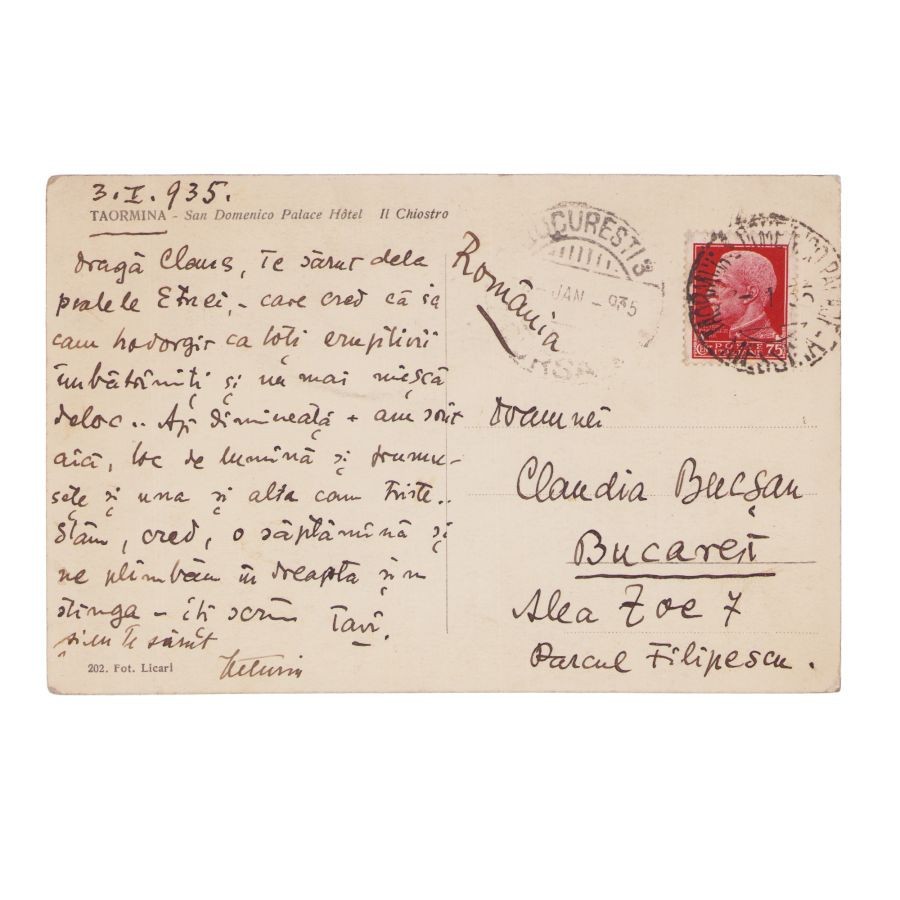 3.I.935.
TAORMINA - San Domenico Palace Hôtel Il Chiostro
Dragă Claus, Te sărut dela
poalele Etnei, - care cred că ia
cam hodorgit ca toți eruptivii
îmbătrîniți și nu mai mișcă
deloc.. Azi dimineață + am sosit
aică, loc de lumină și frumu-
sețe și una și alta cam triste..
Stăm, cred, o săptămînă și
ne plimbăm în dreapta și-n
stînga - îți scriu Tavi.
și eu te sărut
202. Fot. Licari
România
BUCUREȘTI 3
JAN 935
POSTE
75
Doamnei
Claudia Bucșan
Bucarest
Alea Zoe 7
Parcul Filipescu.